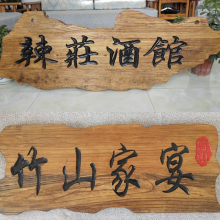 辣莊酒館
竹山家宴